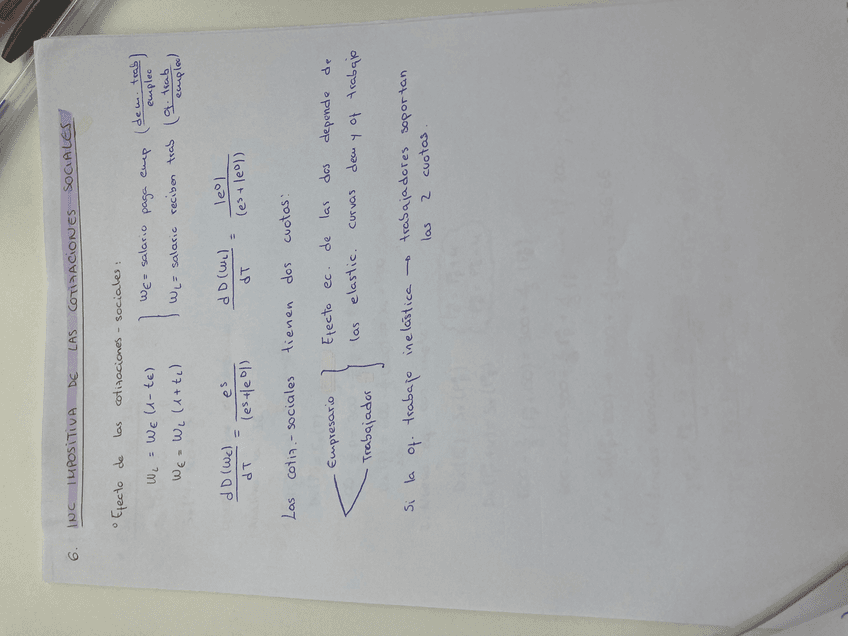 6. INC IMPOSITIVA DE LAS COTIZACIONES SOCIALES
° Efecto de las cotizaciones-sociales:
WL = WE (1 - tE) } WE = salario paga emp (dem. trab / empleo)
WE = WL (1 + tL) } WL = salario reciben trab (of. trab / empleo)
dD(WE)/dT = eˢ/(eˢ+|eᴰ|) dD(WL)/dT = |eᴰ|/(eˢ+|eᴰ|)
Las cotiz.-sociales tienen dos cuotas:
Empresario } Efecto ec. de las dos depende de
Trabajador } las elastic. curvas dem y of trabajo
Si la of. trabajo inelástica → trabajadores soportan
las 2 cuotas.